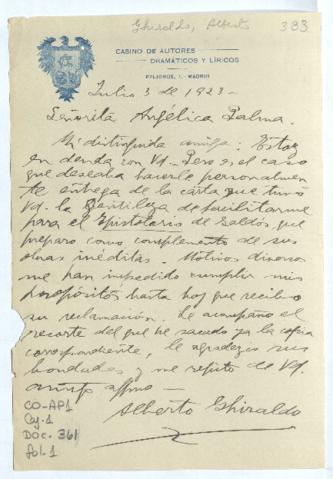 Ghiraldo, Alberto 383
CASINO DE AUTORES
DRAMÁTICOS Y LÍRICOS
MADRID
Julio 3 de 1923 -
Señorita Angélica Palma.
Mi distinguida amiga: Estoy
en deuda con Vd. - Pero es el caso
que deseaba hacerle personalmen
te entrega de la carta que tuvo
Vd. la gentileza de facilitarme
para el Epistolario de Galdós, que
preparo como complemento de sus
obras inéditas. Motivos diversos
me han impedido cumplir mis
propósitos hasta hoy que recibo
su reclamación. Le acompaño el
recorte del que he sacado ya la copia
correspondiente, le agradezco sus
bondades y me repito de Vd.
amigo affmo -
Alberto Ghiraldo
CO-AP1
Caj. 1
Doc. 361
fol. 1